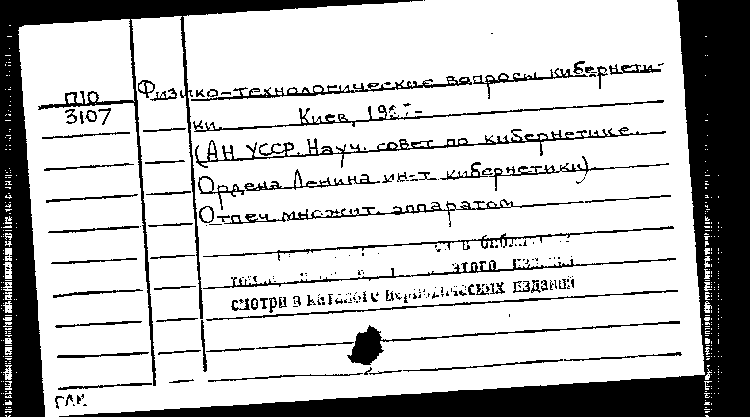 П10
3107
Физико-технологические вопросы кибернети-
ки. Киев, 196 -
(АН УССР. Науч. совет по кибернетике.
Ордена Ленина ин-т кибернетики).
Отпеч. множит. аппаратом
в библ
этого издания
смотри в каталоге периодических изданий